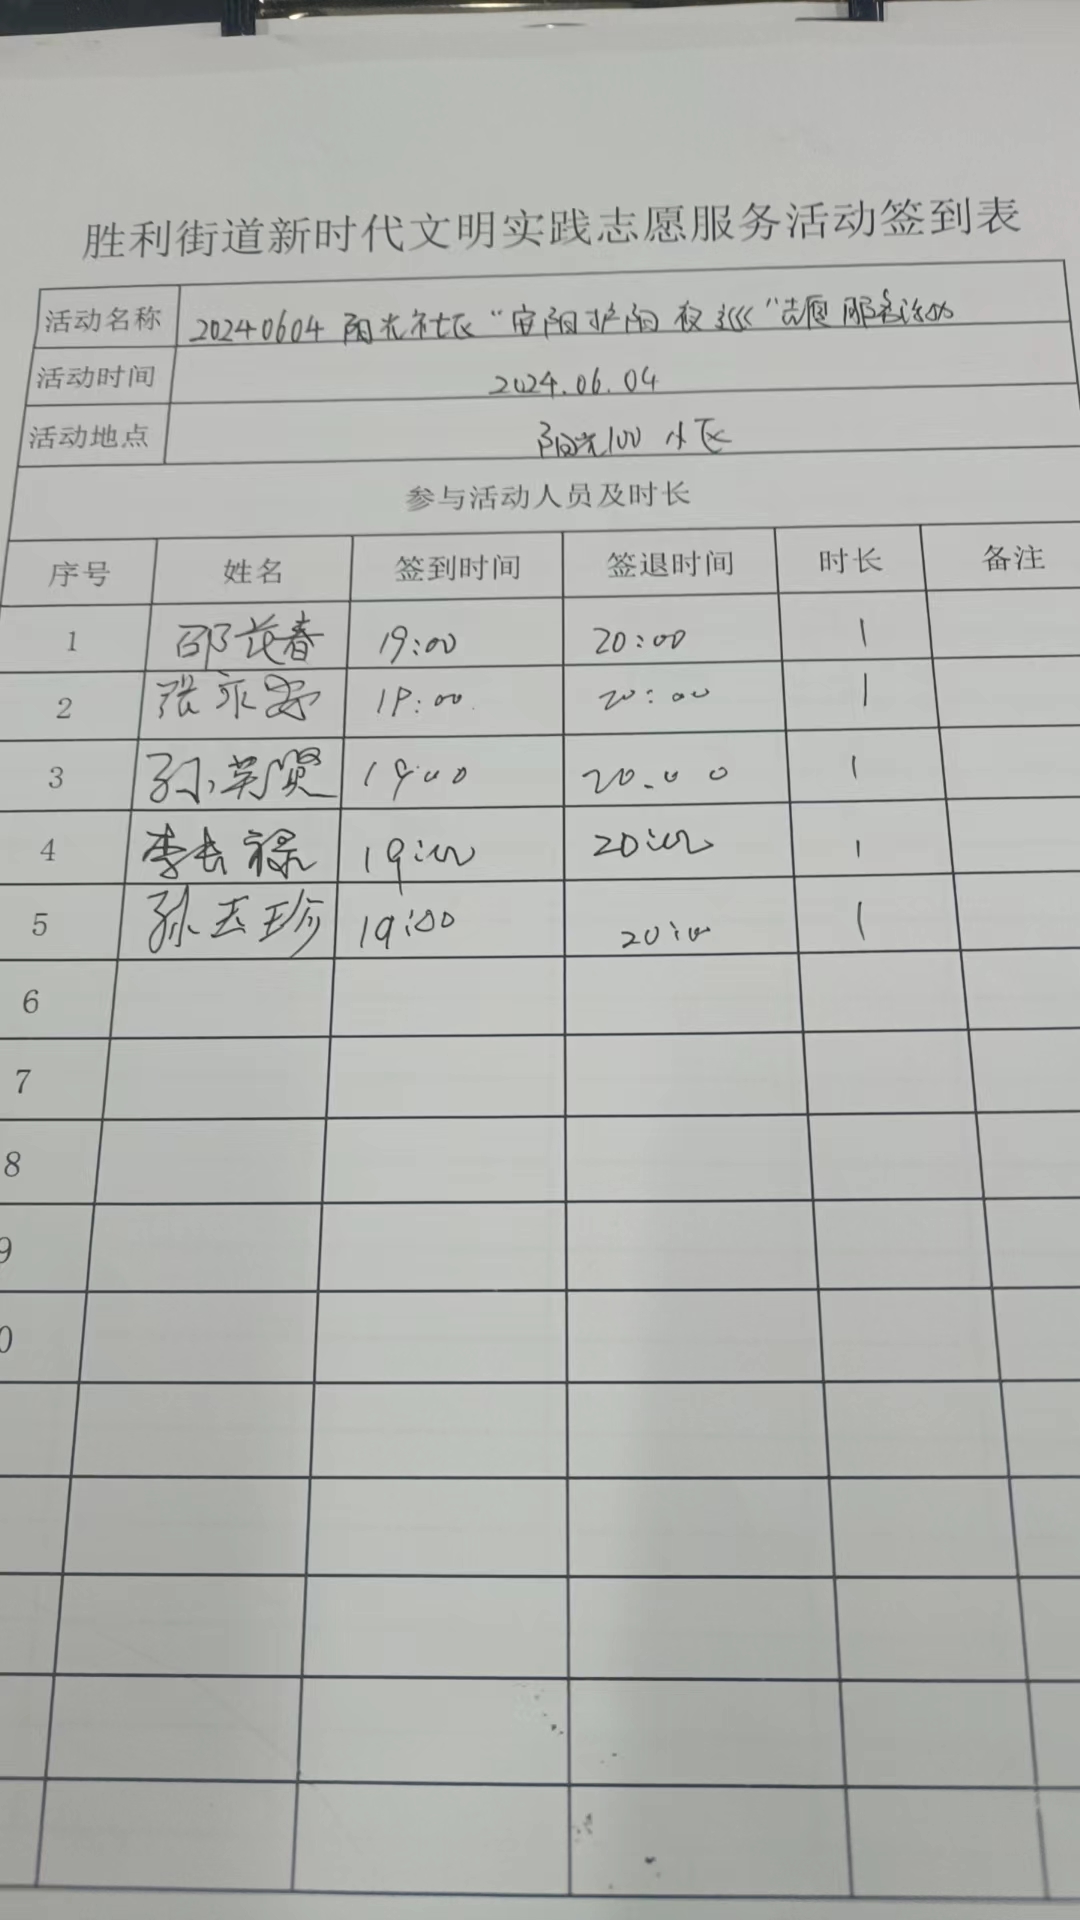 胜利街道新时代文明实践志愿服务活动签到表
活动名称 20240604 阳光社区“安阳护阳 夜巡”志愿服务活动
活动时间 2024.06.04
活动地点 阳光100 小区
参与活动人员及时长
序号 姓名 签到时间 签退时间 时长 备注
1 邵花春 19:00 20:00 1
2 张永 19:00 20:00 1
3 孙英贤 19:00 20:00 1
4 李长禄 19:00 20:00 1
5 孙玉珍 19:00 20:00 1
6
7
8
9
0